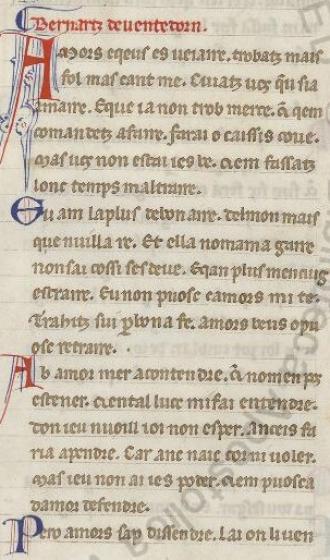 Bernartz deuentedorn.
Amors eqeus es ueiaire. trobatz mais
fol mas cant me. Cuiatz uos qu sia
amaire. Eque ia non trob merce. & qem
comandetz afaire. farai o caissis coue.
Mas uos non estai ies be. qem fassatz
lonc temps maltraire.
Eu am laplus debonaire. delmon mais
que nuilla re. Et ella nomama gaire
non sai cossi ses deue. Eqan plus mencug
estraire. Eu non puosc camors mi te.
Trahitz sui p bona fe. amors beus o pu
osc retraire.
Ab amor mer acontendre. & nomen pos
estener. qental luec mi fai entendre.
don ieu nuoill ioi non esper. Anceis fa
ria apendre. Car anc naic cor ni uoler.
Mas ieu non ai ies poder. qem puosca
damor defendre.
Pero amors sap dissendre. lai on li uen